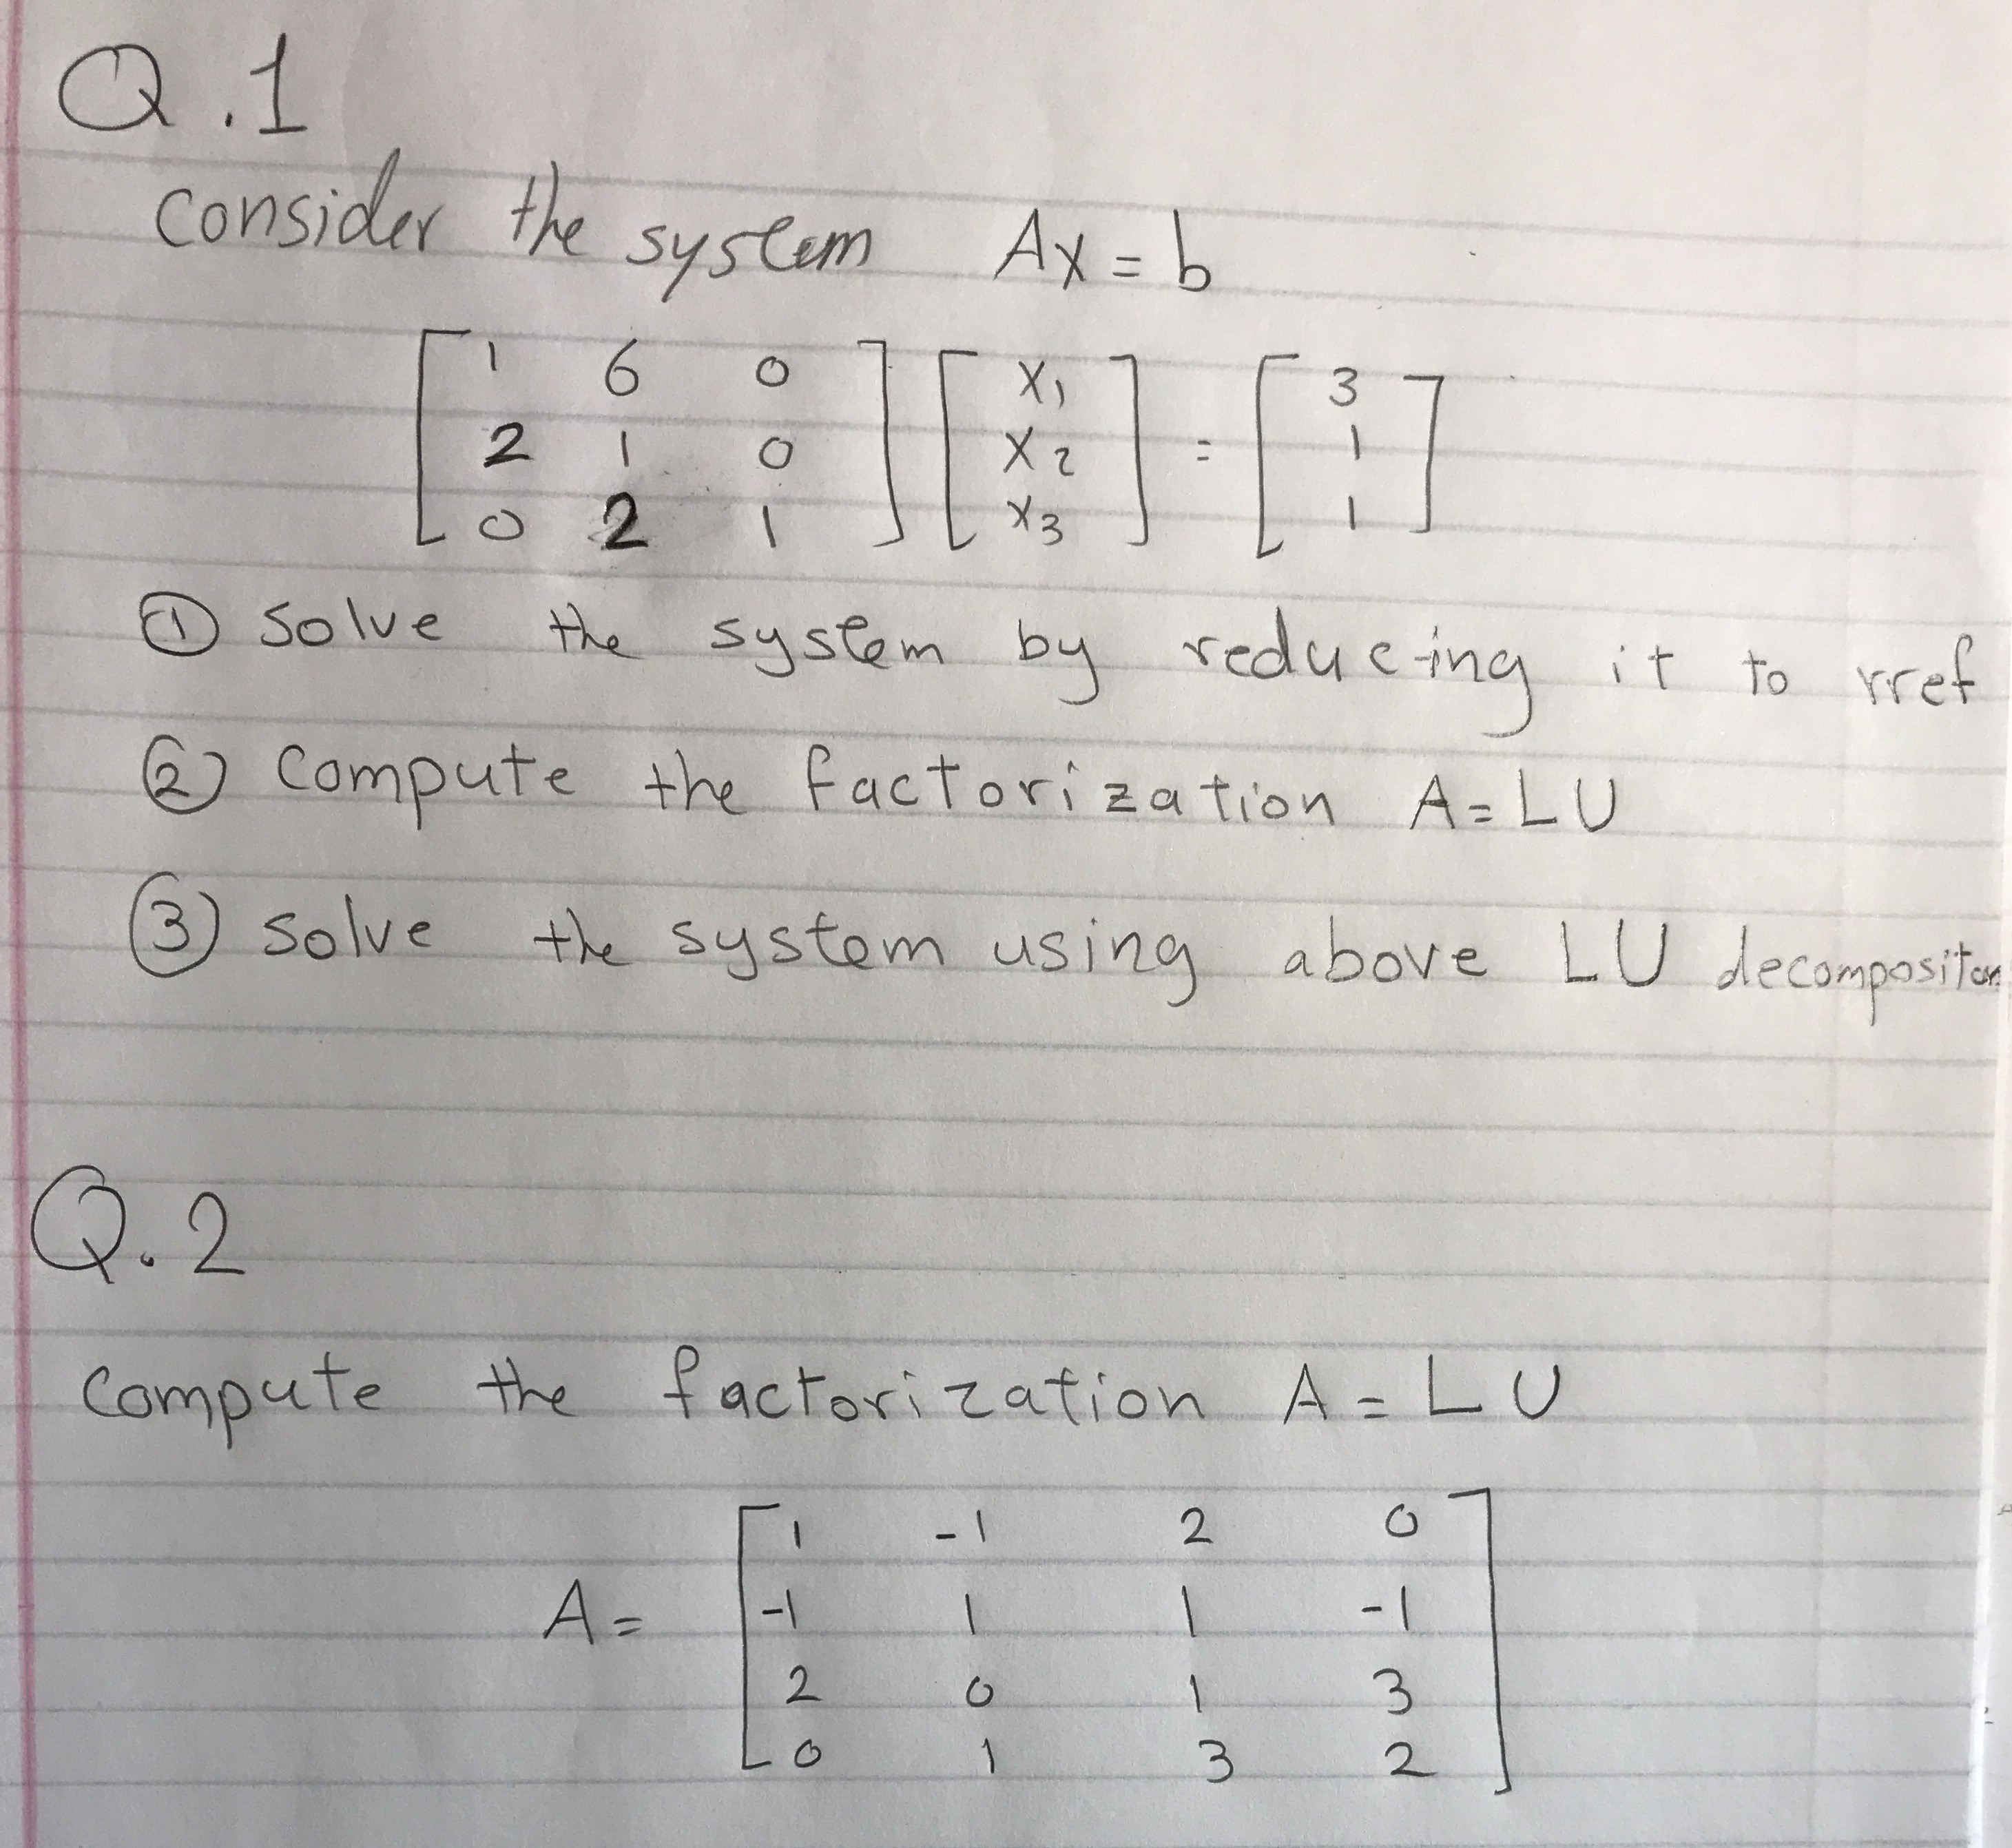 Q.1
consider the system Ax = b
[ 1 6 0 ] [ x₁ ] = [ 3 ]
[ 2 1 0 ] [ x₂ ] [ 1 ]
[ 0 2 1 ] [ x₃ ] [ 1 ]
① solve the system by reducing it to rref
② compute the factorization A = LU
③ solve the system using above LU decompositon
Q.2
compute the factorization A = LU
A = [ 1 -1 2 0 ]
[ -1 1 1 -1 ]
[ 2 0 1 3 ]
[ 0 1 3 2 ]